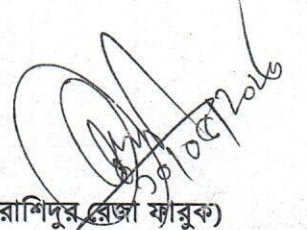 ১০/০৫/২০২৬
রাশিদুর রেজা ফারুক)